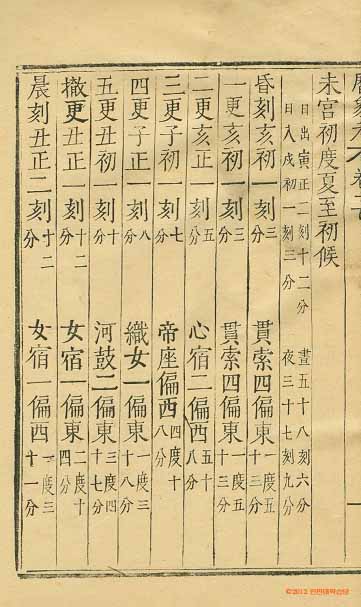 未宮初度夏至初候
日出寅正二刻十二分 晝五十八刻六分
日入戌初一刻三分 夜三十七刻九分
昏刻亥初一刻三分 貫索四偏東一度五十三分
一更亥初一刻三分 貫索四偏東一度五十三分
二更亥正一刻五分 心宿二偏西五十八分
三更子初一刻七分 帝座偏西四度十八分
四更子正一刻八分 織女一偏東一度三十八分
五更丑初一刻十分 河鼓二偏東三度四十七分
撤更丑正一刻十二分 女宿一偏東二度十四分
晨刻丑正二刻十二分 女宿一偏西一度三十一分
©2012 인민대학습당